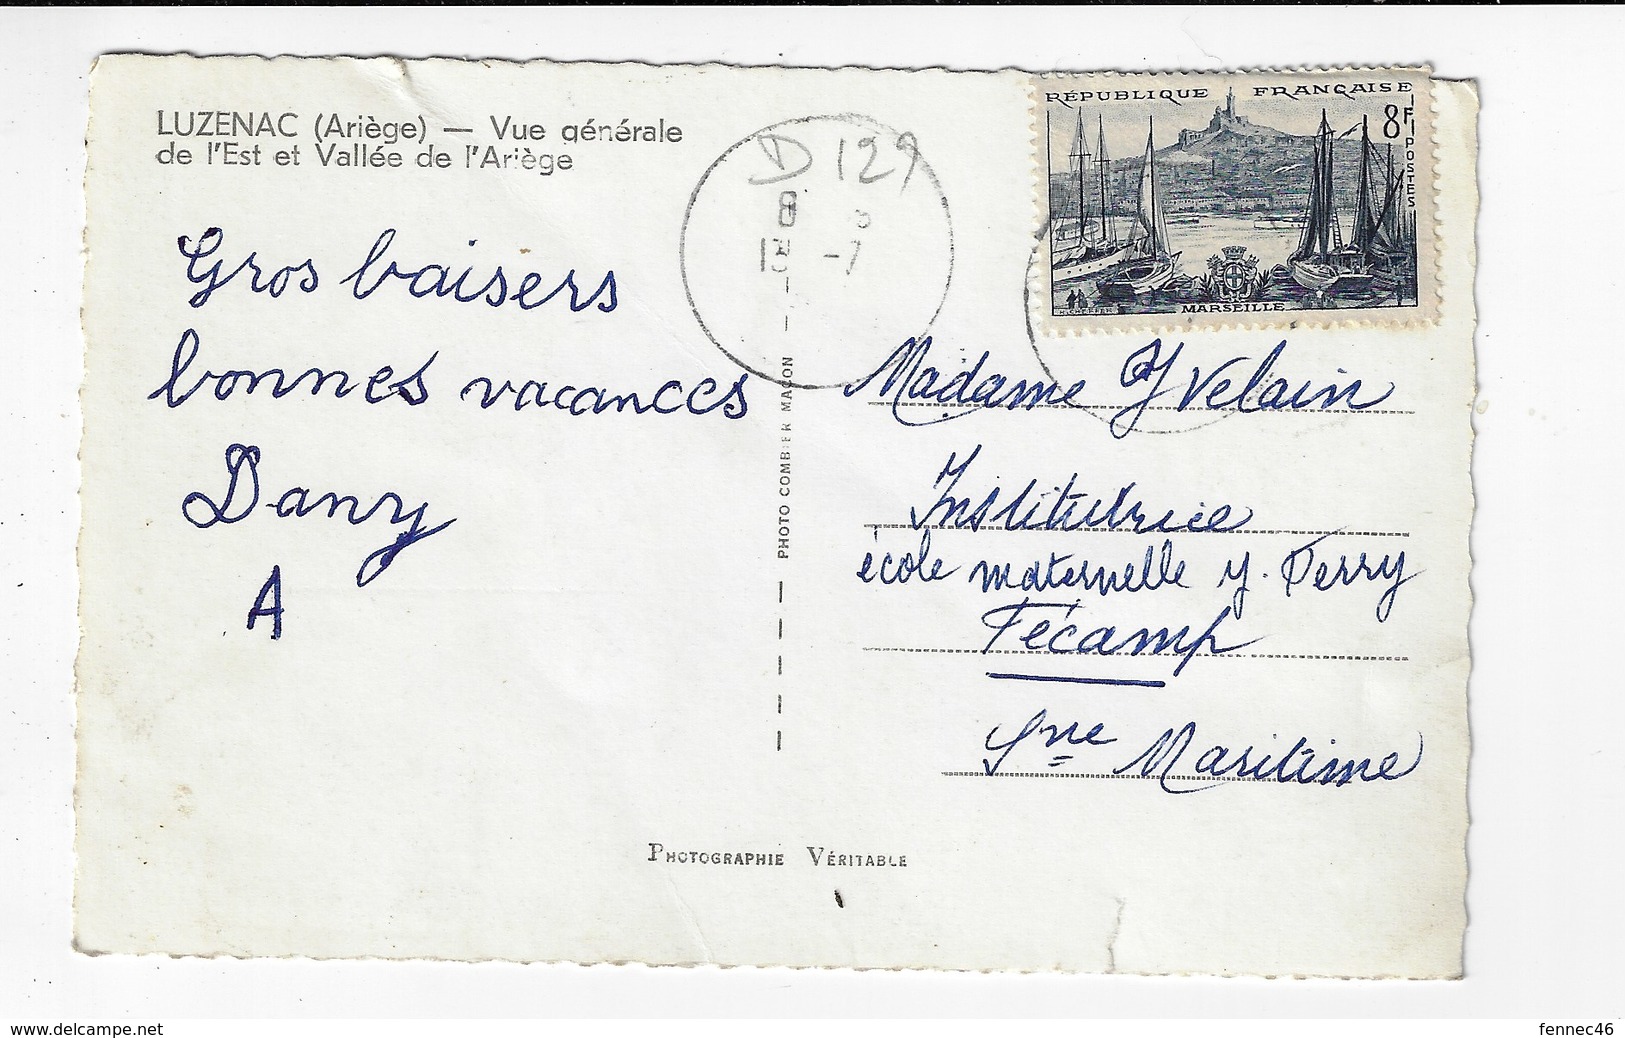 LUZENAC (Ariège) — Vue générale
de l'Est et Vallée de l'Ariège
Gros baisers
bonnes vacances
Dany
A
D 129
RÉPUBLIQUE FRANÇAISE
8F
POSTES
MARSEILLE
PHOTO COMBIER MACON
Madame Yvelain
Institutrice
école maternelle J. Ferry
Fécamp
Sne Maritime
PHOTOGRAPHIE VÉRITABLE
delcampe.net
fennec46